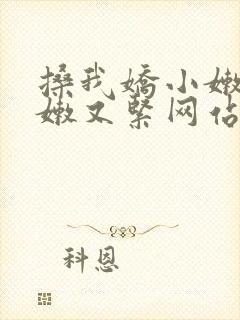 搡我娇小嫩
嫩又紧网佔
科恩